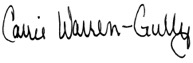 Carrie Warren-Gully